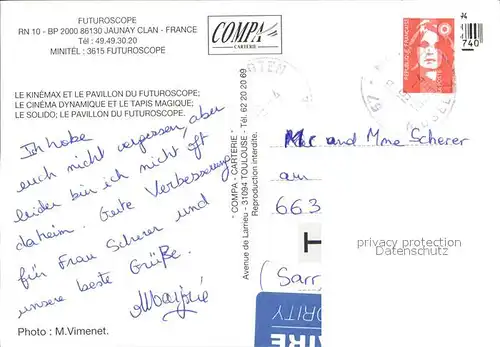 FUTUROSCOPE
RN 10 - BP 2000 86130 JAUNAY CLAN - FRANCE
Tél : 49.49.30.20
MINITÉL : 3615 FUTUROSCOPE
COMPA
CARTERIE
RÉPUBLIQUE FRANÇAISE
LA POSTE
740
LE KINÉMAX ET LE PAVILLON DU FUTUROSCOPE;
LE CINÉMA DYNAMIQUE ET LE TAPIS MAGIQUE;
LE SOLIDO; LE PAVILLON DU FUTUROSCOPE.
Ich habe
euch nicht vergessen, aber
leider bin ich nicht oft
daheim. Gute Verbesserung
für Frau Scherer und
unsere beste Grüße.
"COMPA - CARTERIE"
Avenue de Larrieu - 31094 TOULOUSE - Tél. 62 20 20 69
Reproduction interdite.
Mr and Mme Scherer
am
663
T
privacy protection
Datenschutz
(Sarr
Photo : M.Vimenet.